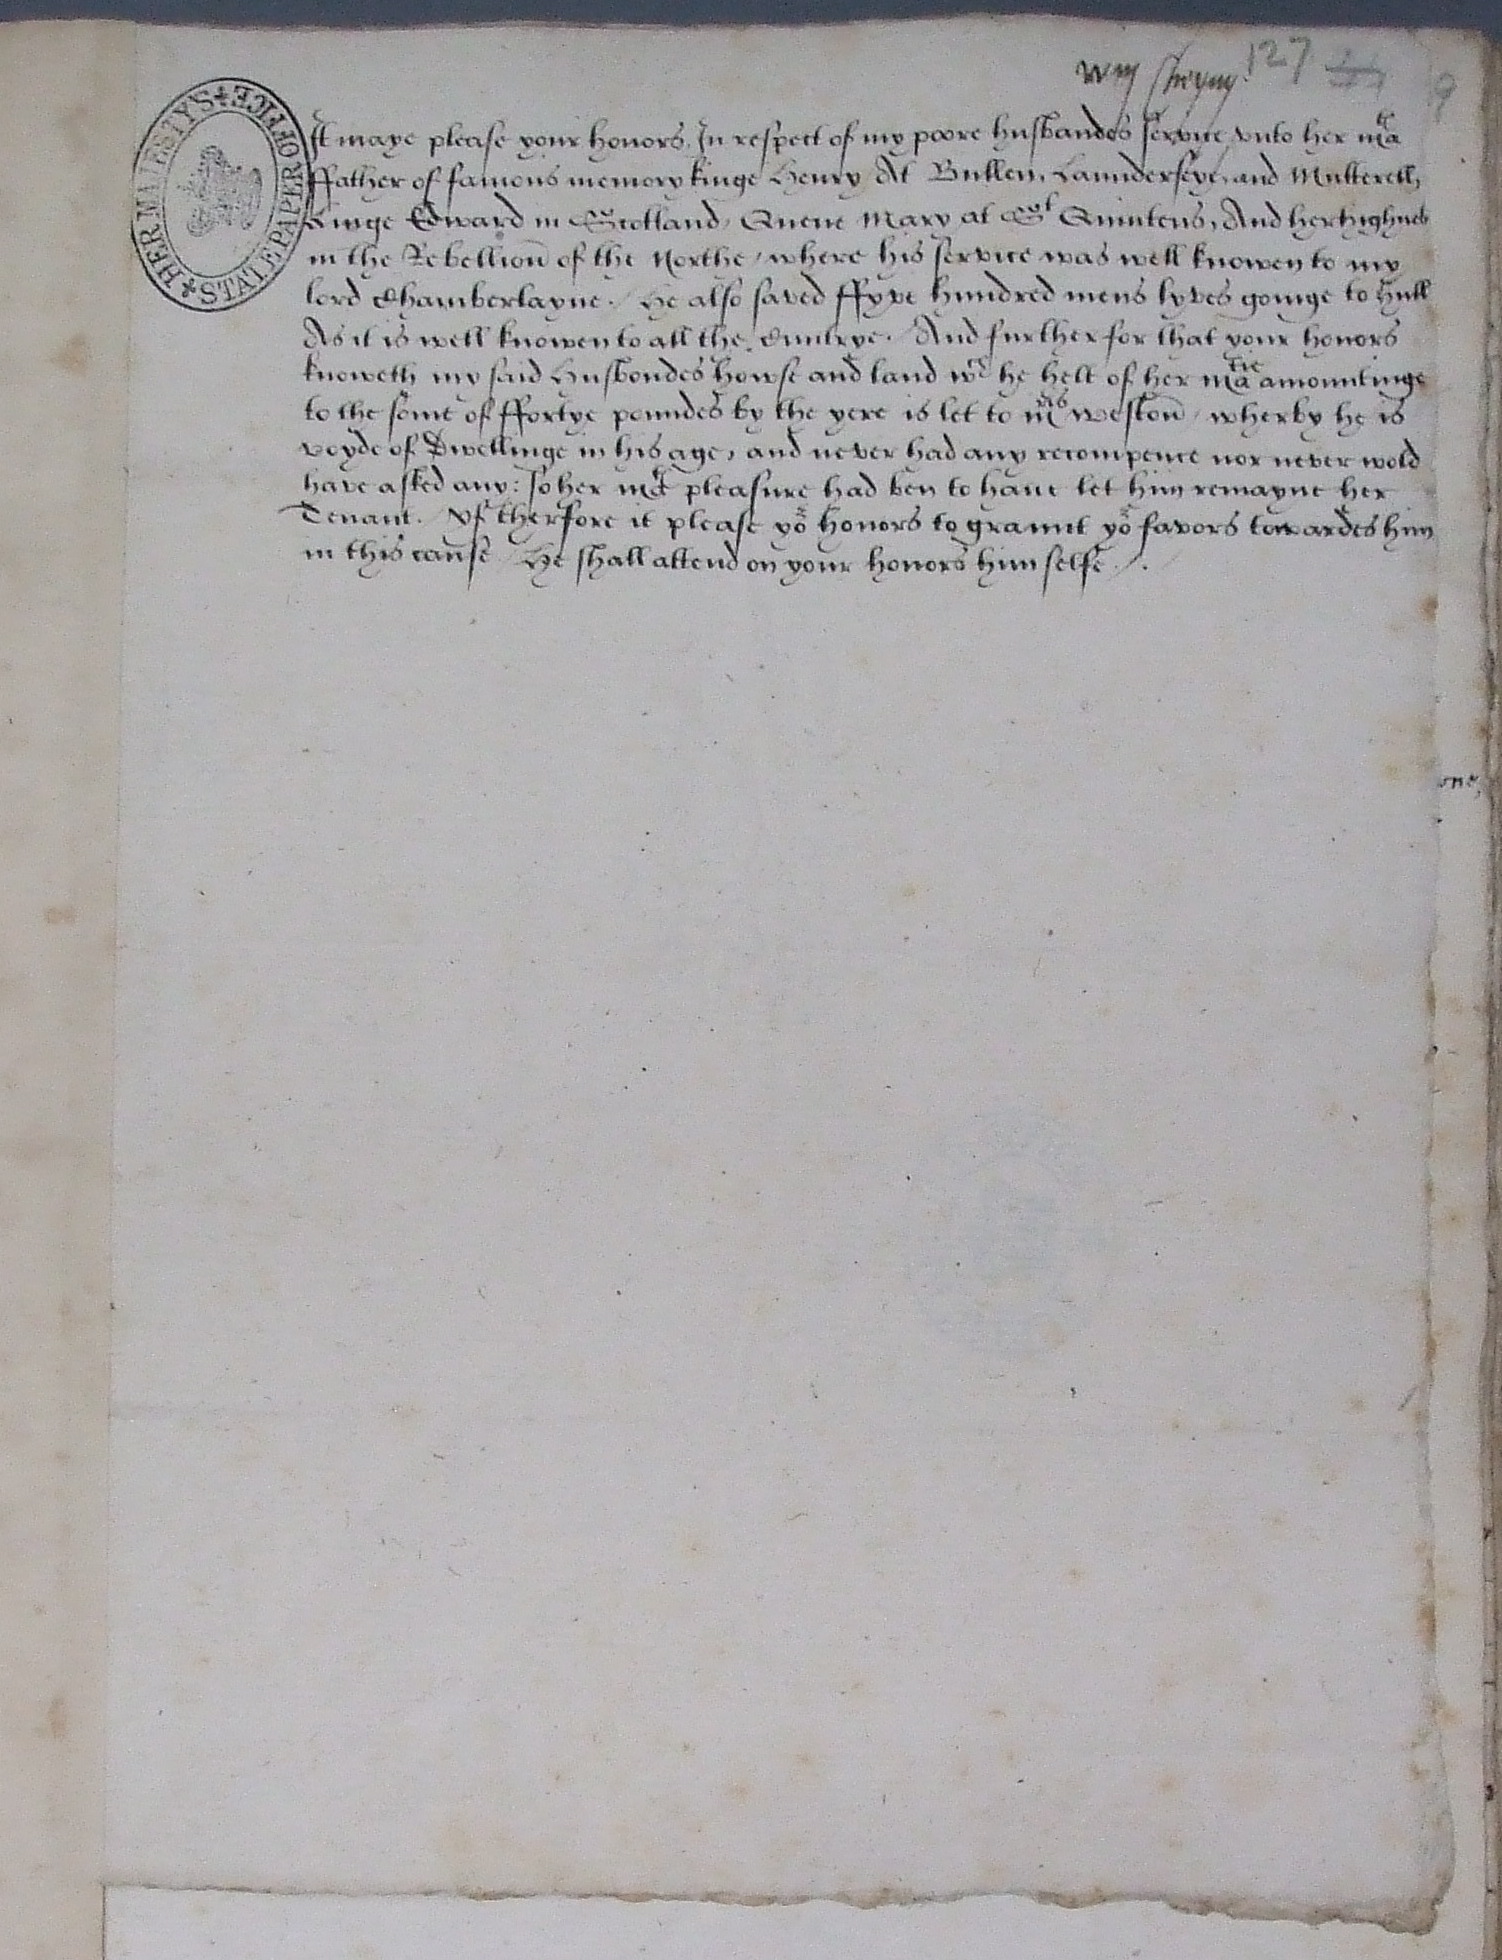 127
HER MAJESTY'S STATE PAPER OFFICE
It maye please your honors. In respect of my poore husbandes service vnto her Ma
ffather of famous memory kinge Henry At Bullen, Launderseye, and Musterell,
Kinge Edward in Scotland, Quene Mary at St Quintens, And her highnes
in the Rebellion of the Northe, where his service was well knowen to my
lord Chamberlayne. He also saved ffyve hundred mens lyves goinge to Hull
As it is well knowen to all the Cuntrye. And further for that your honors
knoweth my said Husbondes howse and land wch he helt of her Matie amountinge
to the some of ffortye poundes by the yere is let to Mris Weston, wherby he is
voyde of Dwellinge in his age, and never had any recompence nor never wold
have asked any: so her Ma pleasure had ben to haue let him remayne her
Tenant. Yf therfore it please yor honors to graunt yor favors towardes him
in this cause He shall attend on your honors him selfe.
one,